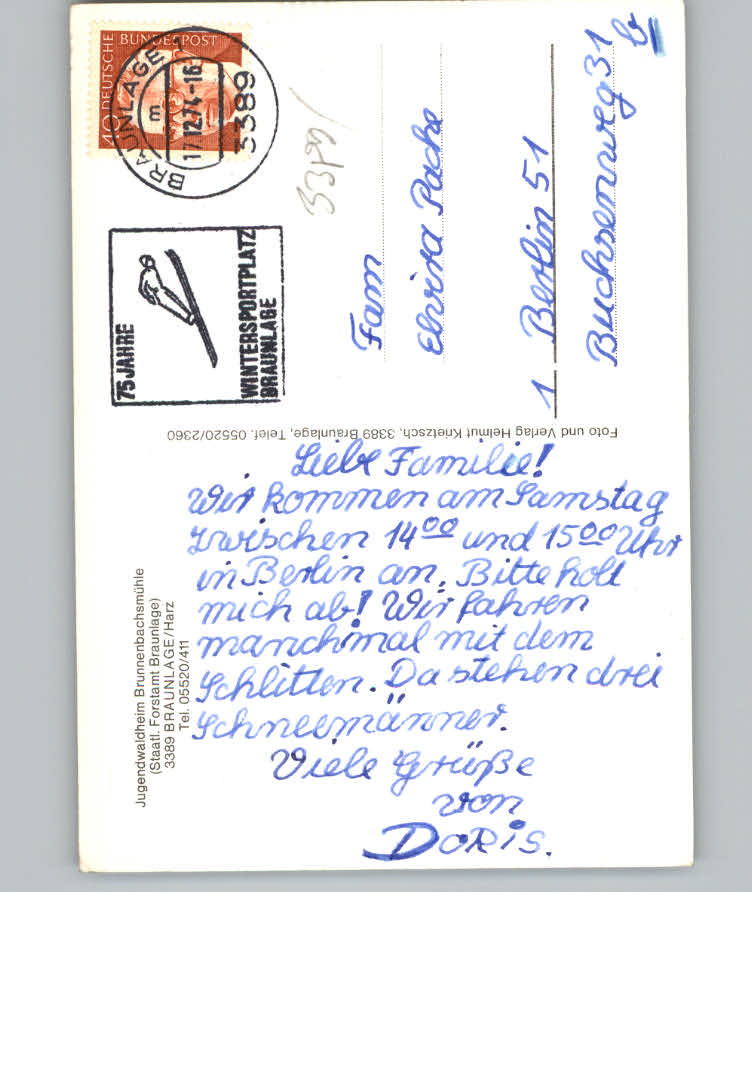 DEUTSCHE BUNDESPOST
40
BRAUNLAGE 1
m
17.12.74-16
3389
75 JAHRE
WINTERSPORTPLATZ
BRAUNLAGE
Fam
Elvira Pache
1 Berlin 51
Buchsenweg 31
b
Foto und Verlag Helmut Krietzsch, 3389 Braunlage, Telef. 05520/2360
Jugendwaldheim Brunnenbachsmühle
(Staatl. Forstamt Braunlage)
3389 BRAUNLAGE/Harz
Tel. 05520/411
Liebe Familie!
Wir kommen am Samstag
zwischen 14⁰⁰ und 15⁰⁰ Uhr
in Berlin an. Bitte holt
mich ab! Wir fahren
manchmal mit dem
Schlitten. Da stehen drei
Schneemänner.
Viele Grüße
von
DORIS.